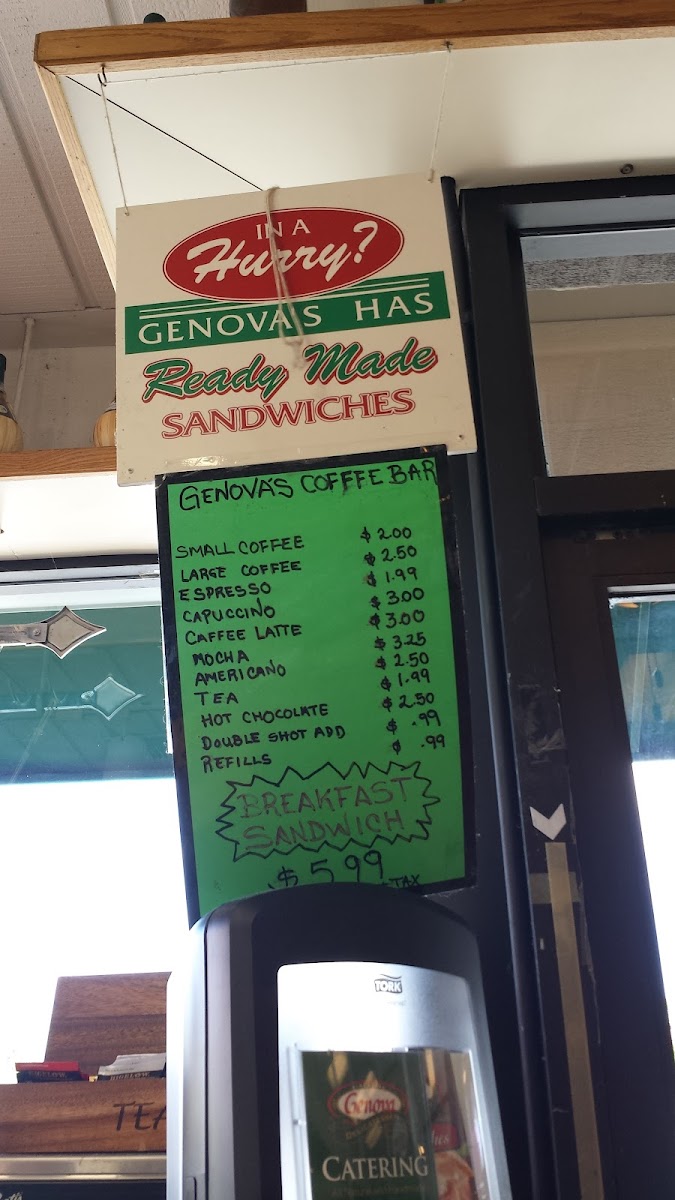 IN A
Hurry?
GENOVA'S HAS
Ready Made
SANDWICHES
GENOVA'S COFFFE BAR
SMALL COFFEE $2.00
LARGE COFFEE $2.50
ESPRESSO $1.99
CAPUCCINO $3.00
CAFFEE LATTE $3.00
MOCHA $3.25
AMERICANO $2.50
TEA $1.99
HOT CHOCOLATE $2.50
DOUBLE SHOT ADD $.99
REFILLS $.99
BREAKFAST
SANDWICH
$5.99
+TAX
TORK
Genova
CATERING
TEA